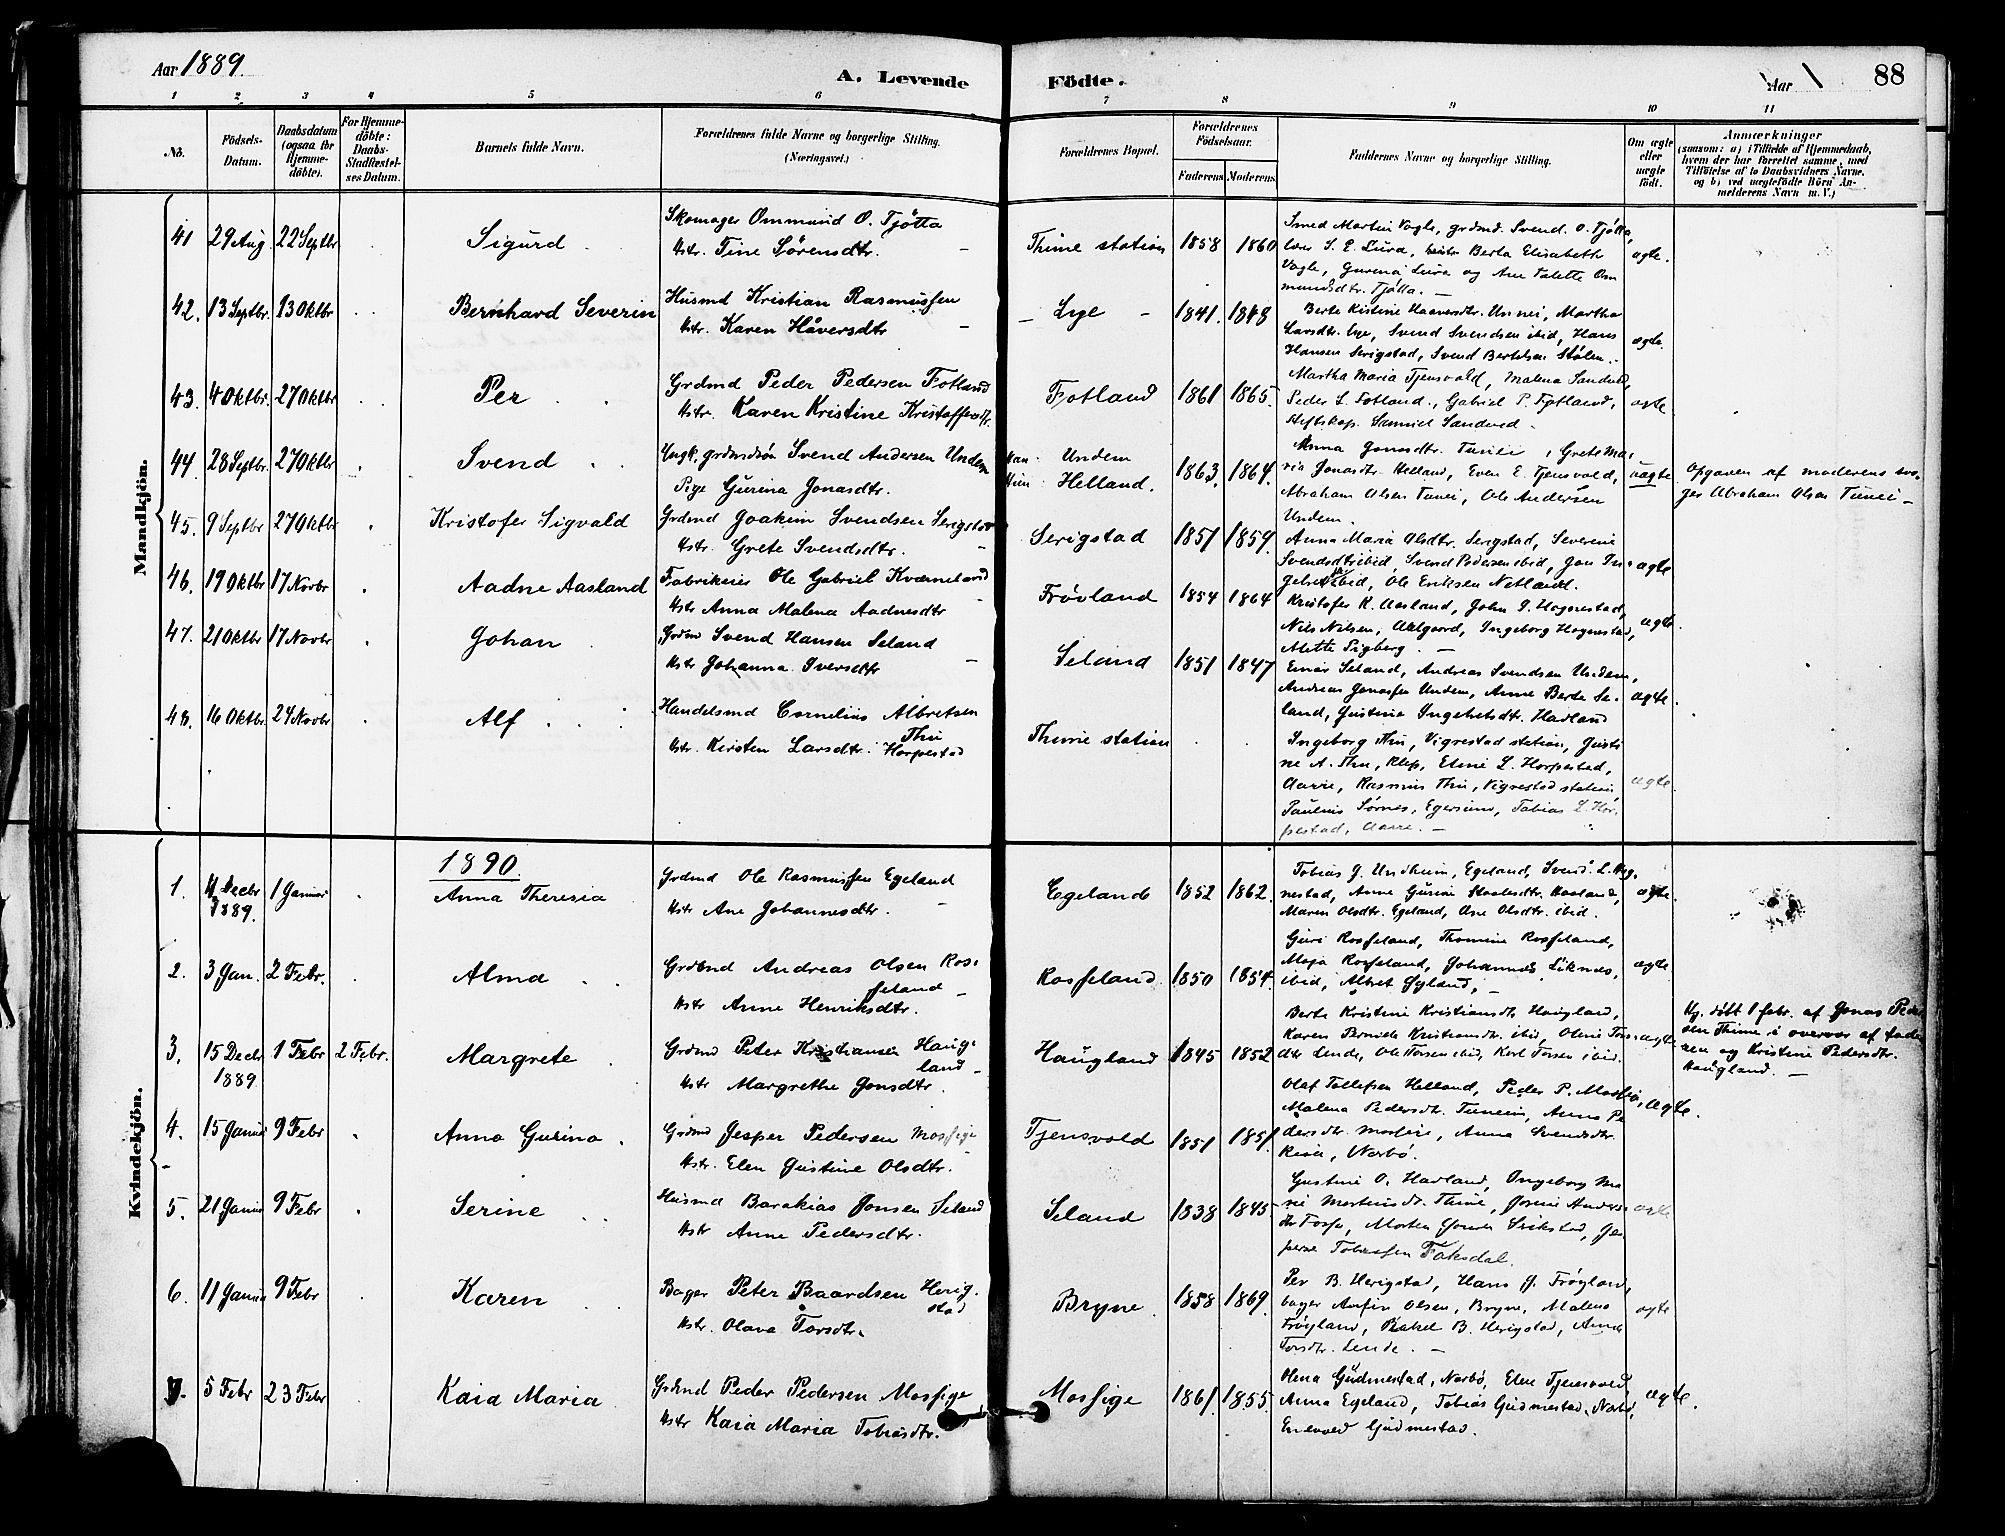 Aar 1889.
A. Levende Födte.
Aar 88
1 2 3 4 5 6 7 8 9 10 11
No.
Födsels-Datum.
Daabsdatum (ogsaa for Hjemme-döbte).
For Hjemme-döbte: Daabs-Stadfæstel-ses Datum.
Barnets fulde Navn.
Forældrenes fulde Navne og borgerlige Stilling. (Næringsvei.)
Forældrenes Bopæl.
Forældrenes Födselsaar.
Faderens Moderens
Faddernes Navne og borgerlige Stilling.
Om ægte eller uægte födt.
Anmærkninger
(saasom: a) i Tilfælde af Hjemmedaab, hvem der har forrettet samme, med Tilföielse af to Daabsvidners Navne. og b) ved uægtefödte Börn An-melderens Navn m. V.)
Mandkjön.
41 29 Aug. 22 Septbr Sigurd
Skomager Ommund O. Tjøtta
Hstr. Tine Sörensdtr.
Thime station 1858 1860
Smed Martin Vagle, grdmd. Svend. O. Tjøtta,
lærer S. E. Lura, Berta Elisabeth
Vagle, Gurina Lura og Ane Talette Om
mundsdtr. Tjøtta. —
ægte.
42. 13 Septbr. 13 Oktbr Bernhard Severin
Husmd Kristian Rasmussen
Hstr. Karen Håversdtr
Lye 1841. 1848
Berte Kistine Haaversdtr. Unnei, Martha
Larsdtr. Lye, Svend Svendsen ibid, Hans
Hansen Serigstad, Svend Bertelsen Stølen.
ægte.
43. 4 Oktbr. 27 Oktbr Per
Grdmd Peder Pedersen Fotland
Hstr. Karen Kristine Kristoffersdtr.
Fotland 1861 1865.
Martha Maria Tjensvold, Malena Sandved,
Peder L. Fotland., Gabriel P. Fotland,
Samuel Sandved.
ægte
44. 28 Septbr. 27 Oktbr Svend
Ungk. grdmdsøn Svend Andersen Undem
Pige Gurina Jonasdtr.
Undem
Helland. 1863. 1864.
Anna Jonasdtr. Tunei, Grete Ma-
ria Jonasdtr. Helland, Even E. Tjensvold,
Abraham Olsen Tunei, Ole Andersen
Undem.
uægte
Opgaven af moderens svo-
ger Abraham Olsen Tunei —
45. 9 Septbr 27 Oktbr Kristofer Sigvald
Grdmd Joakim Svendsen Serigstad
Hstr. Grete Svendsdtr.
Serigstad 1851 1859.
Anna Maria Olsdtr. Serigstad, Severine
Svendsdtr ibid, Svend Pedersen ibid, Jon In-
gebret ibid, Ole Eriksen Netland.
ægte
46. 19 Oktbr 17 Novbr Aadne Aasland
Fabrikeier Ole Gabriel Kværneland
Hstr Anna Malena Aadnesdtr
Frøvland 1854 1864
Kristofer K. Aasland, John J. Hognestad,
Nils Nilsen, Aalgaard, Ingeborg Hognestad,
Mette Sigberg. —
ægte.
47. 21 Oktbr 17 Novbr Johan
Grdmd Svend Hansen Seland
Hstr Johanna Iversdtr
Seland 1851 1847
Einar Seland, Andreas Svendsen Undem,
Andreas Jonassen Undem, Anne Berte Se-
land, Gustine Ingebretsdtr. Hadland
ægte.
48. 16 Oktbr. 24 Novbr Alf
Handelsmd Cornelius Albretsen
Thu
Hstr. Kirsten Larsdtr. Horpestad
Thime station
Ingeborg Thu, Vigrestad station, Justi
ne A. Thu, Klep, Eline L. Horpestad,
Aarre, Rasmus Thu, Vigrestad station
Paulius Sørnes, Egersund, Tobias L. Hor-
pestad, Aarre. —
ægte.
Kvindekjön.
1890.
1. 4 Decbr 1889. 1 Januar Anna Theresia
Grdmd Ole Rasmussen Egeland
Hstr. Ane Johannesdtr.
Egeland 1852 1862.
Tobias G. Undheim, Egeland, Svend L. Hog-
nestad, Anne Gurine Haaland,
Maren Olsdtr. Egeland, Ane Olsdtr. ibid.
ægte.
2. 3 Jan. 2 Febr. Alma
Grdmd Andreas Olsen Ros-
seland —
Hstr Anne Henriksdtr.
Rosseland. 1850 1854.
Guri Rosseland, Thomine Rosseland,
Maja Rosseland, Johannes Liknes,
ibid, Albret Øyland, —
ægte
3. 15 Decbr 1889 1 Febr 2 Febr. Margrete
Grdmd Peter Kristiansen Haug-
land —
Hstr Margrethe Jonsdtr.
Haugland 1845 1852
Berte Kristine Kristiansdtr Haugland,
Karen Pernille Kristiansdtr. ibid, Oline Tors-
dtr Lende, Ole Torsen ibid, Karl Torsen ibid.
ægte
Hj. döbt 1 febr. af Jonas Peder
sen Thime i overvær af fade-
ren og Kristine Pedersdtr.
Haugland. —
4. 15 Januar 9 Febr Anna Gurina
Grdmd Jesper Pedersen Mossige
Hstr. Elen Gustine Olsdtr.
Tjensvold 1851 1851
Olaf Tollefsen Helland, Peder P. Mossige,
Malena Pedersdtr. Tuneim, Anna Pe
dersdtr. Mossige, Anna Svendsdtr.
Risa, Nærbø.
ægte.
5. 21 Januar 9 Febr Serine
Husmd Barakias Jonsen Seland
Hstr Anne Pedersdtr.
Seland 1838 1845
Gustine O. Hadland, Ingeborg Ma
rie Mortensdtr. Thime, Josine Anders-
dtr Fosse, Morten Serikstad, Jes
perne Tobiassen Taksdal.
ægte
6. 11 Januar 9 Febr Karen
Bager Peter Baardsen Herig-
stad
Hstr. Olava Torsdtr.
Bryne 1858 1869.
Per B. Herigstad, Hans J. Frøyland,
bager Anfin Olsen, Bryne, Malena
Frøyland, Rakel B. Herigstad, Anna
Torsdtr. Lende. —
ægte
7. 5 Febr 23 Febr Kaia Maria
Grdmd Peder Pedersen Mossige
Hstr Kaia Maria Tobiasdtr.
Mossige 1861. 1855.
Olena Gudmestad, Nærbø, Elen Tjensvold,
Anna Egeland, Tobias Gudmestad, Nærbø,
Enevold Gudmestad.
ægte.